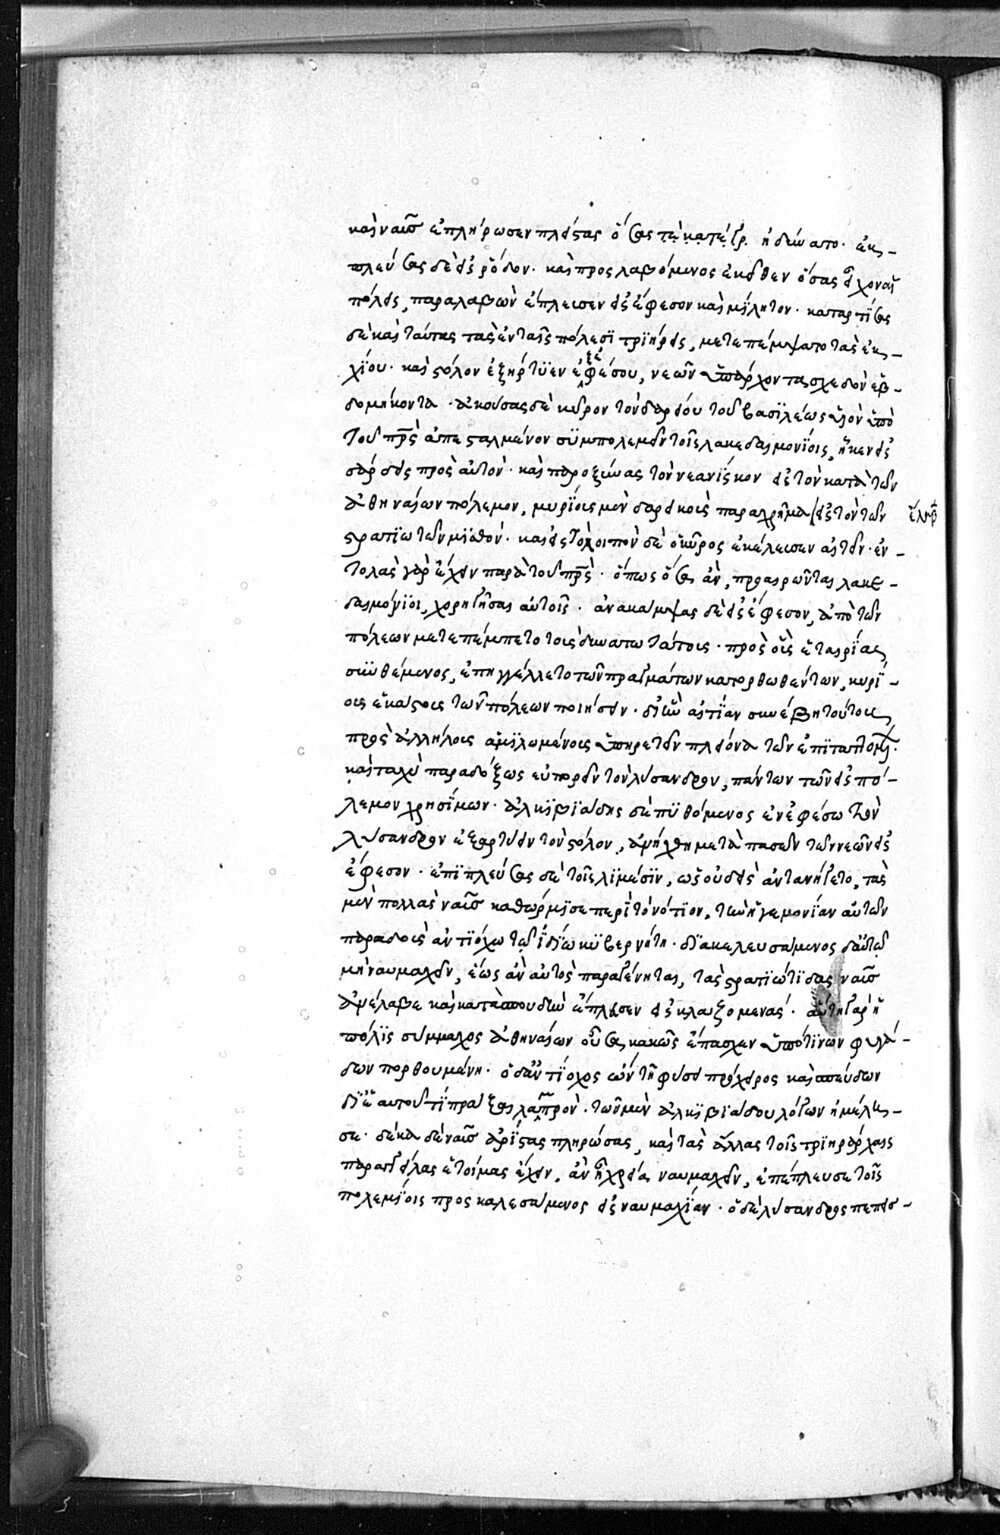 καὶ ναῦς ἐπλήρωσεν πλείστας ὅσας τὲ κατέστρ ἠδύνατο. ἐκ-
πλεύσας δὲ εἰς ῥόδον. καὶ προσλαβόμενος ἐκεῖθεν ὅσας εἶχον αἱ
πόλεις, παραλαβὼν ἔπλευσεν εἰς ἔφεσον καὶ μίλητον. καταρτίσας
δὲ καὶ ταύτας τὰς ἐν ταῖς πόλεσι τριήρεις, μετεπέμψατο τὰς ἐκ
χίου. καὶ στόλον ἐξήρτυεν ἐξ ἐφέσου, νεῶν ὑπάρχοντα σχεδὸν ἑβ-
δομήκοντα. ἀκούσας δὲ κῦρον τὸν δαρείου τοῦ βασιλέως υἱὸν ὑπὸ
τοῦ πρς ἀπεσταλμένον συμπολεμεῖν τοῖς λακεδαιμονίοις, ἧκεν εἰς
σάρδεις πρὸς αὐτόν. καὶ παροξύνας τὸν νεανίσκον εἰς τὸν κατὰ τῶν
ἀθηναίων πόλεμον, μυρίους μὲν δαρεικοὺς παραχρῆμα ἔλαβ εἰς τὸν τῶν
στρατιωτῶν μισθόν. καὶ εἰς τὸ λοιπὸν δὲ ὁ κῦρος ἐκέλευσεν αἰτεῖν. ἐν-
τολὰς γὰρ ἔχειν παρὰ τοῦ πρς. ὅπως ὅσα ἂν προαιρῶνται λακε-
δαιμόνιοι, χορηγῆσαι αὐτοῖς. ἀνακάμψας δὲ εἰς ἔφεσον, ἀπὸ τῶν
πόλεων μετεπέμπετο τοὺς δυνατωτάτους. πρὸς οὓς ἑταιρίας
συνθέμενος, ἐπηγγέλλετο τῶν πραγμάτων κατορθωθέντων, κυρί-
ους ἑκάστους τῶν πόλεων ποιήσειν. δι' ἣν αἰτίαν συνέβη τούτους
πρὸς ἀλλήλους ἁμιλωμένους ὑπηρετεῖν πλείονα τῶν ἐπιταττομέν.
καὶ ταχὺ παραδόξως εὐπορεῖν τὸν λύσανδρον, πάντων τῶν εἰς πό-
λεμον χρησίμων. ἀλκιβιάδης δὲ πυθόμενος ἐν ἐφέσω τὸν
λύσανδρον ἐξαρτύειν τὸν στόλον, ἀνήχθη μετὰ πασῶν τῶν νεῶν εἰς
ἔφεσον. ἐπιπλεύσας δὲ τοῖς λιμέσιν, ὡς οὐδεὶς ἀντανήγετο, τὰς
μὲν πολλὰς ναῦς καθώρμισε περὶ τὸ νότιον, τὴν ἡγεμονίαν αὐτῶν
παραδοὺς ἀντιόχω τῷ ἰδίω κυβερνήτη. διακελευσάμενος δ' αὐτῷ
μὴ ναυμαχεῖν, ἕως ἂν αὐτὸς παραγένηται, τὰς στρατιώτιδας ναῦς
ἀνέλαβε καὶ κατὰ σπουδὴν ἔπλευσεν εἰς κλαζομενάς. αὕτη γὰρ ἡ
πόλις σύμμαχος ἀθηναίων οὖσα κακῶς ἔπασχεν ὑπό τινων φυγά-
δων πορθουμένη. ὁ δ' ἀντίοχος ὢν τῇ φύσει πρόχειρος καὶ σπεύδων
δι' ἑαυτοῦ τὶ πράξαι λαμπρόν. τῶν μὲν ἀλκιβιάδου λόγων ἠμέλη-
σε. δέκα δὲ ναῦς ἀρίστας πληρώσας, καὶ τὰς ἄλλας τοῖς τριηράρχαις
παραγγείλας ἑτοίμας ἔχειν, ἂν ᾖ χρεία ναυμαχεῖν, ἐπέπλευσε τοῖς
πολεμίοις προσκαλεσάμενος εἰς ναυμαχίαν. ὁ δὲ λύσανδρος πεπυσ-